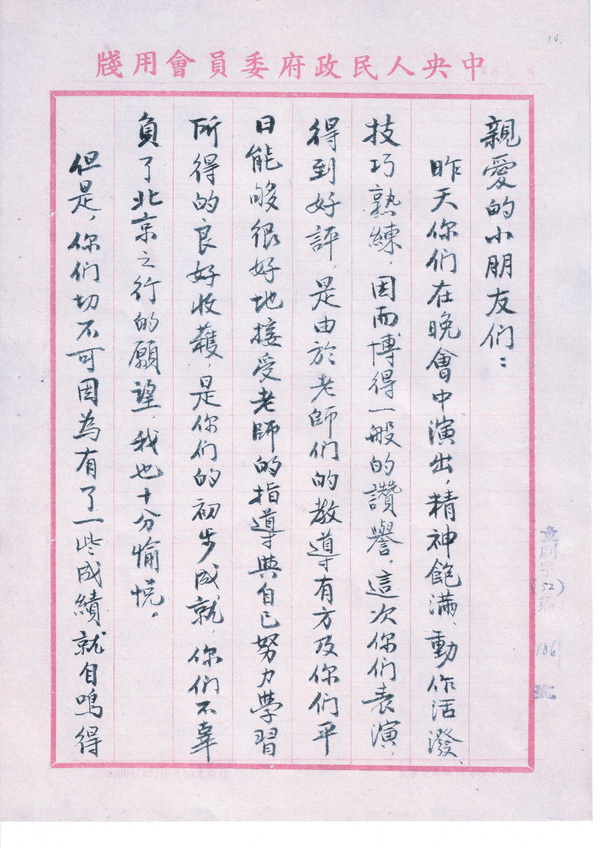 中央人民政府委員會用牋
親愛的小朋友们：
昨天你们在晚會中演出，精神飽滿、動作活潑、
技巧熟練，因而博得一般的讚譽。這次你们表演，
得到好評，是由於老師们的教導有方及你们平
日能够很好地接受老師的指導與自己努力學習
所得的良好收獲，是你们的初步成就，你们不辜
負了北京之行的願望，我也十分愉悦。
但是，你们切不可因為有了一些成績就自鳴得
186